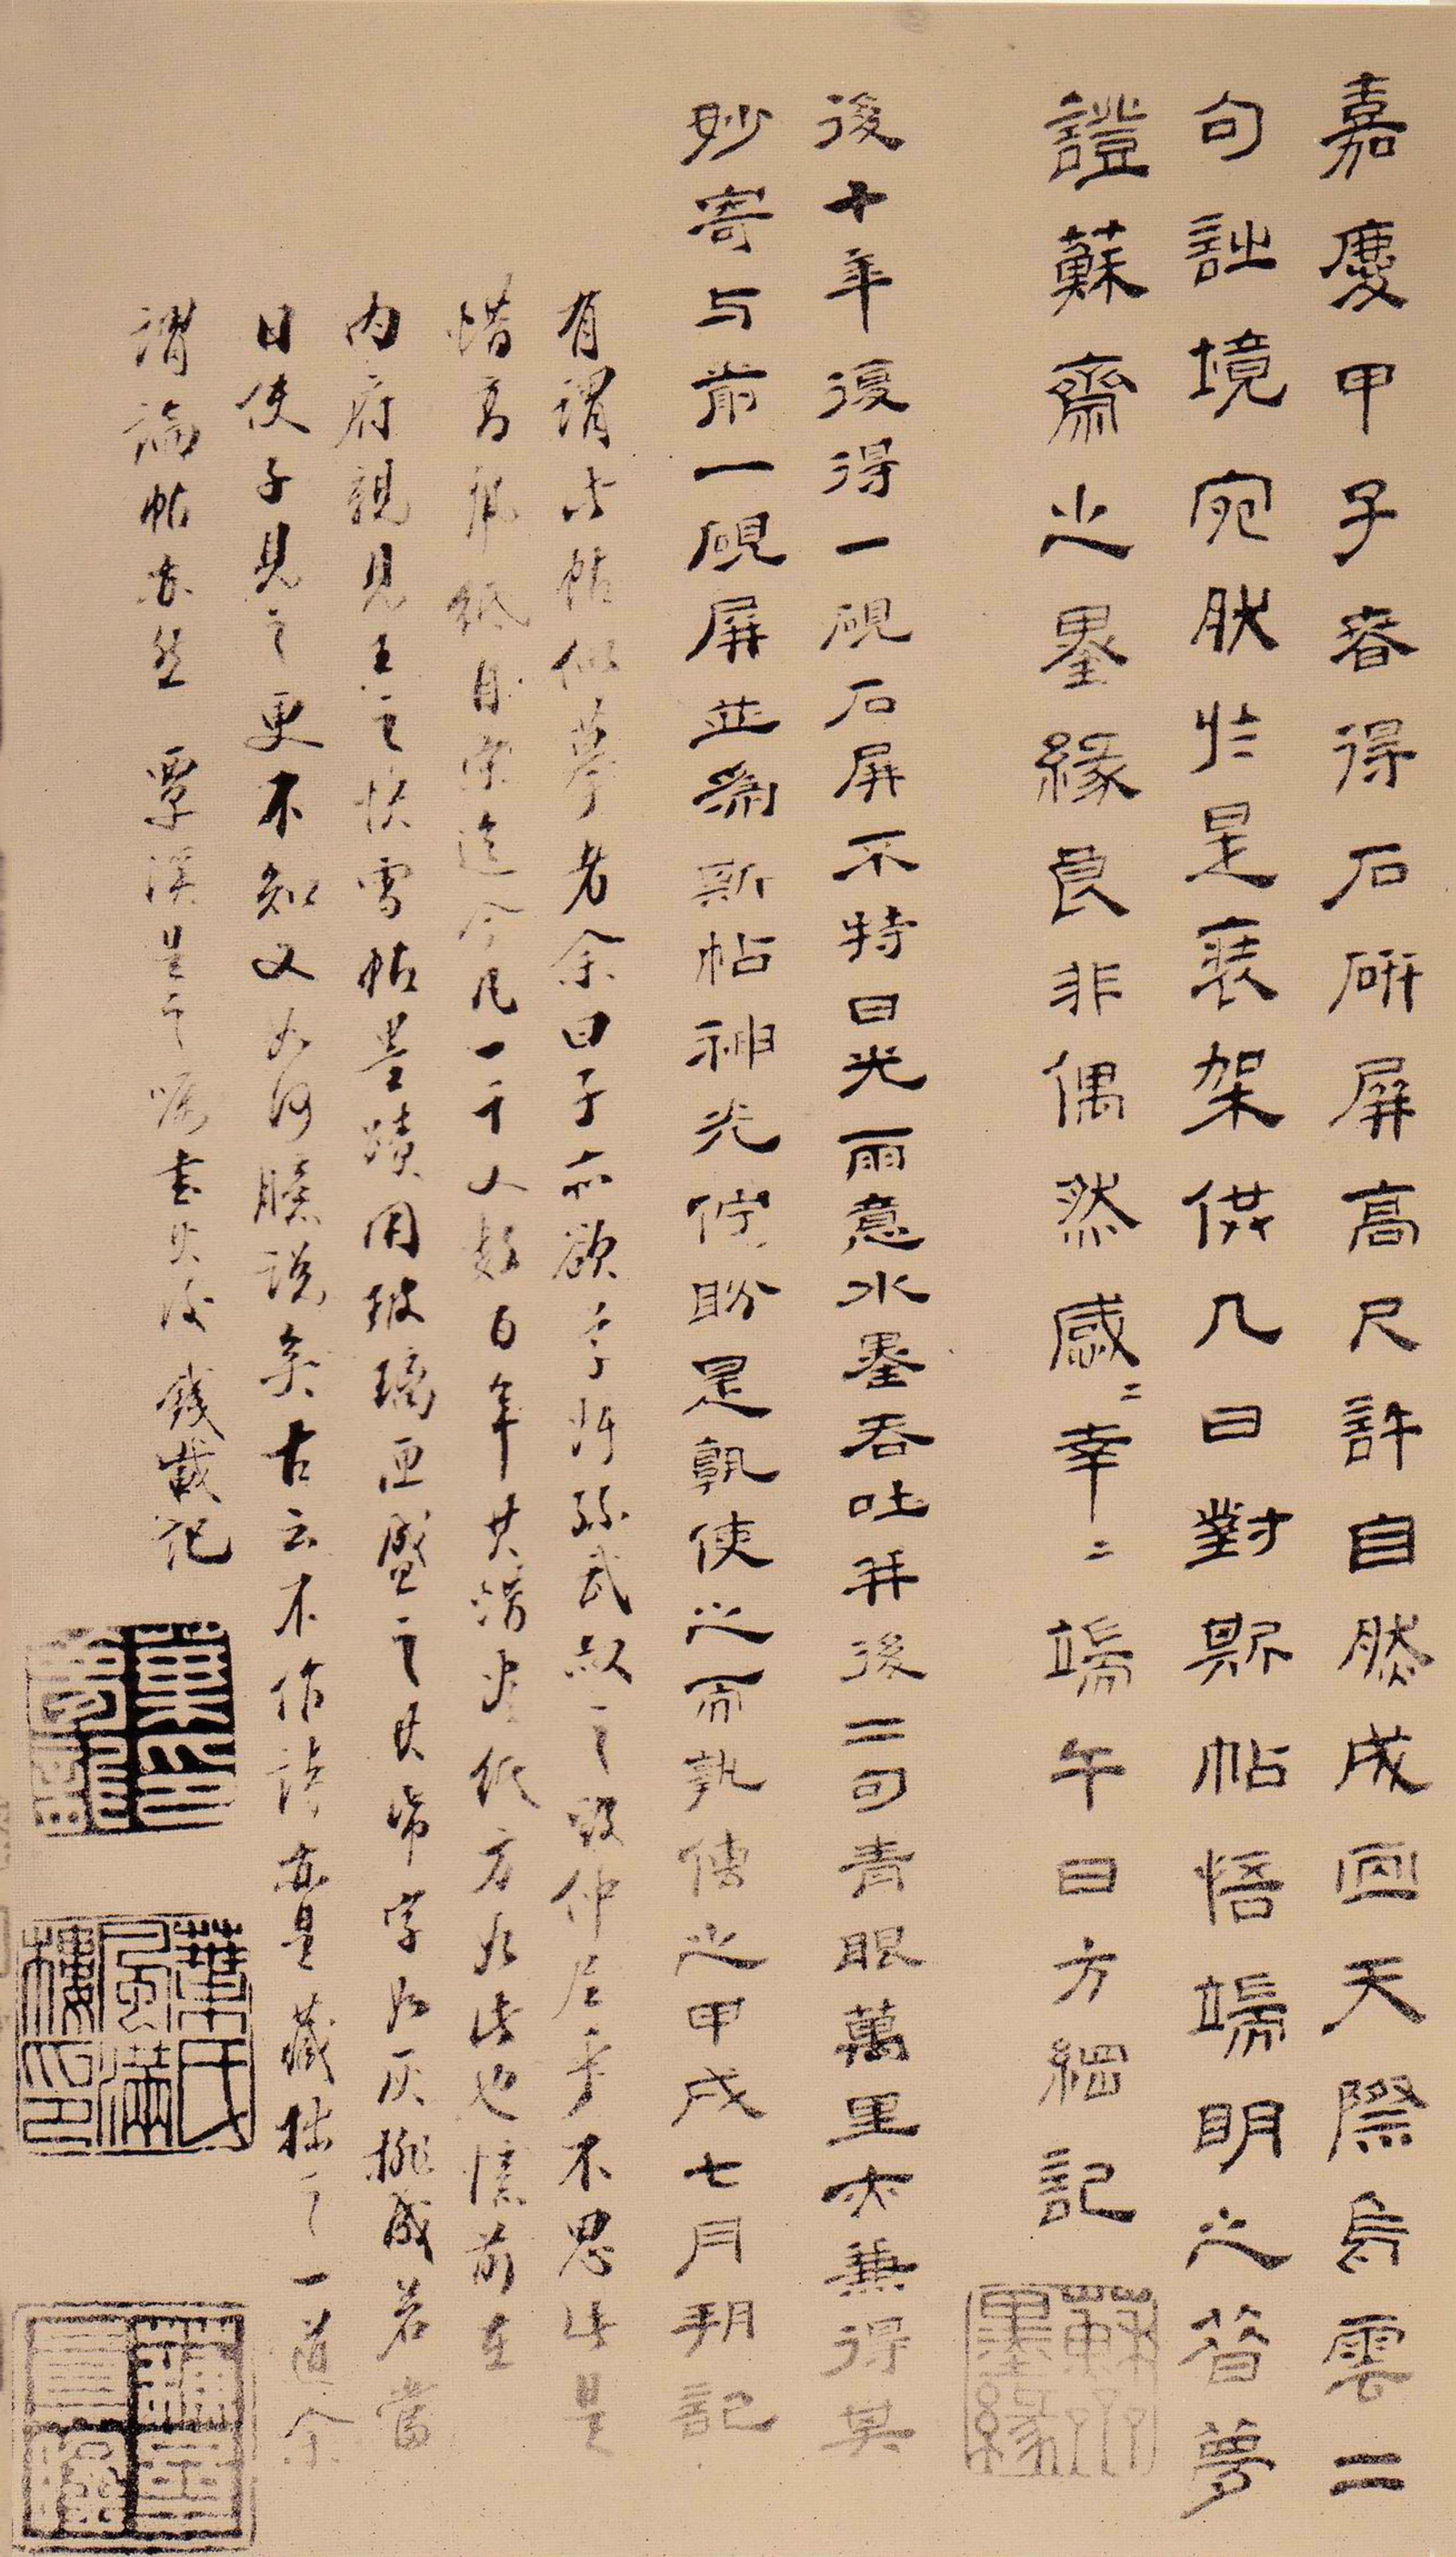 嘉慶甲子春得石研屏高尺許自然成画天際烏雲二
句詩境宛肰扵是裝架供几日對斯帖悟端明之昔夢
證蘇齋之墨緣良非偶然感二幸二端午日方綱記
蘇齋墨緣
後十年復得一硯石屏不特日光雨意水墨吞吐并後二句青眼萬里亦兼得其
妙寄与前一硯屏並為斯帖神光佇盼是孰使之而孰傳之甲戌七月朔記
有謂此帖似摹者余曰子亦欲學孫武叔之毀仲尼乎不思此是
惜高麗紙自宋迄今凡一千又數百年其紙方如此也憶前在
内府親見王之快雪帖墨蹟用玻璃匣盛之其帋字如灰成若當
日使子見之更不知又如何臆說矣古云不作詩亦是藏拙之一道余
謂論帖亦然 覃溪是之囑書其後 錢載記
葉氏風滿樓印